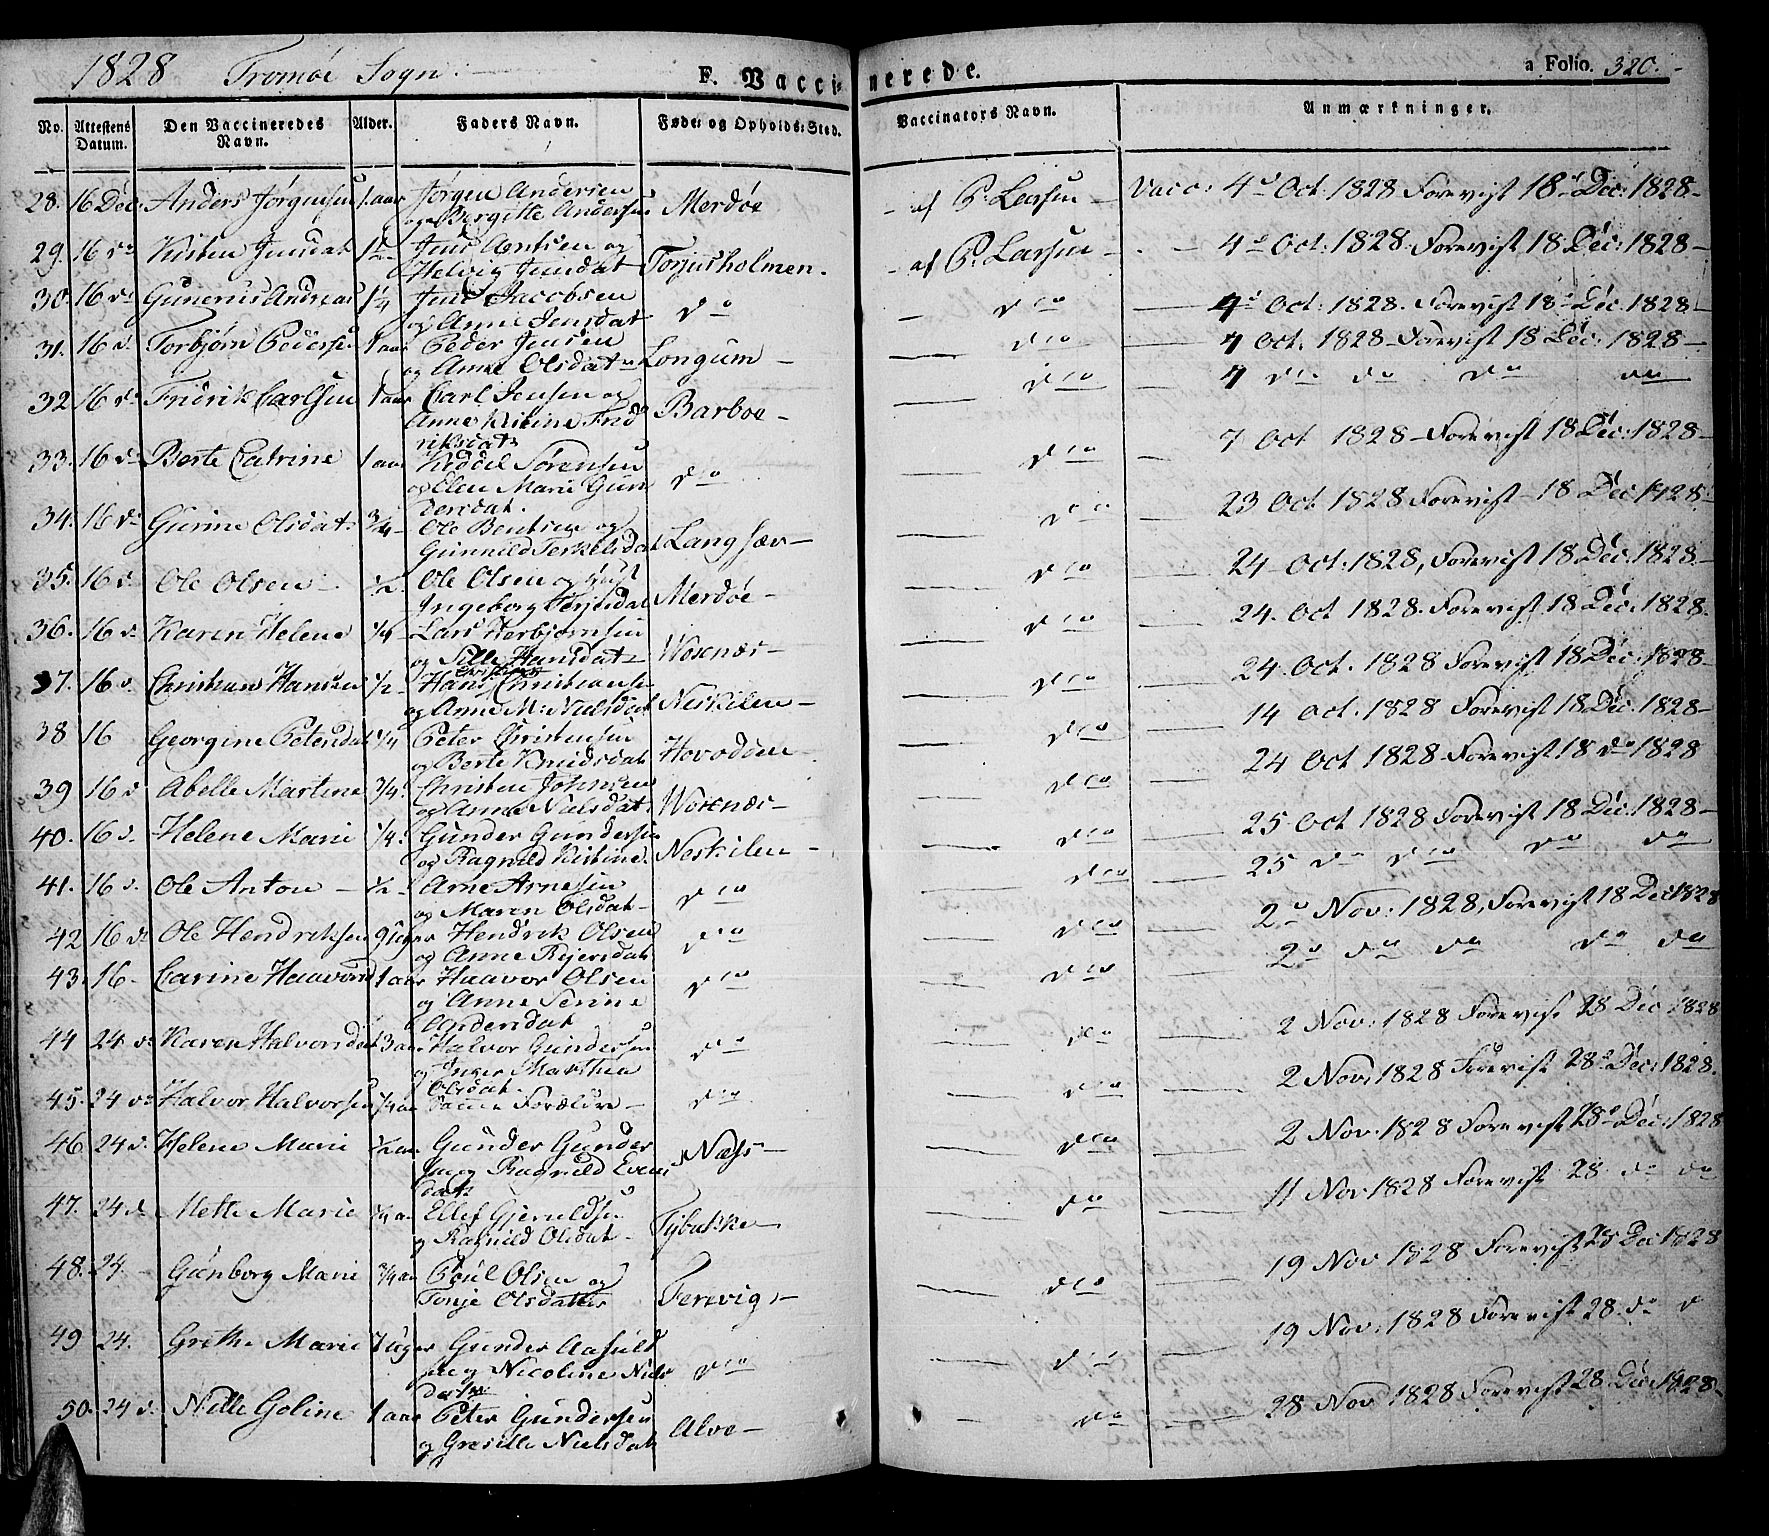 1828 Tromöe Sogn. F. Vaccinerede. a Folio. 320.
No. Attestens Datum. Den Vaccineredes Navn. Alder. Faders Navn. Føde: og Opholds: Sted. Vaccinators Navn. Anmærkninger.
28. 16 Dec. Anders Jørgensen 1 aar Jørgen Andersen Merdøe – af P. Larsen – Vacc: 4d Oct: 1828 Forevist 18d Dec: 1828 –
og Bergitte Andersen
29. 16 do Kisten Jensdat 1 Jens Arntsen og Torjusholmen. – af P. Larsen – 4d Oct. 1828. Forevist 18 Dec: 1828 –
Helvig Jensdat
30. 16 do Gunerius Andreas 1/4 Jens Jacobsen do – do – 4d Oct: 1828. Forevist 18d Dec. 1828
og Anne Jensdat
31. 16 d. Torbjørn Pedersen 1 aar Peder Jensen Longum – do – 4 Oct. 1828 – Forevist 18 Dec: 1828 –
og Anne Olsdat
32 16 do Fridrik Carlsen 1 aar Carl Jensen og Barboe – do – 4 do do do do
Anne Kistine Frid
riksdat
33. 16 do Berte Catrine 1 aar Kiddel Sørensen do do – 7 Oct 1828 – Forevist 18 Dec: 1828 –
og Elen Marie Gun
dersdat.
34. 16 do Gurine Olsdat 3/4 Ole Bentsen og Langsæv – do – 23 Oct 1828 Forevist – 18 Dec 1828.
Gunnild Terkelsdat
35. 16 d. Ole Olsen – 1/2. Ole Olsen og Merdøe – do – 24 Oct: 1828, Forevist 18 Dec: 1828 –
Ingeborg Terjesdat
36. 16 do Karen Helene 1/4 Lars Herbjørnsen Woxnæs – do – 24. Oct 1828. Forevist 18 Dec: 1828.
og Sille Hansdat –
37. 16 d. Christian Hansen 1/2 Hans Christiansen Neskilen – do – 24 Oct. 1828 Forevist 18 Dec: 1828 –
og Anne M: Nielsdat
38 16 Georgine Petersdat 1/4 Peter Christensen Hovodden – do – 14 Oct. 1828 Forevist 18 Dec: 1828 –
og Berte Knudsdat
39 16 d Abelle Martine 3/4. Christen Johnsen Woxnæs – do – 24 Oct 1828 – Forevist 18 do 1828
og Anne Nielsdat.
40. 16 d. Helene Marie 1/4. Gunder Gundersen Neskilen – do – 25 Oct 1828 Forevist 18 Dec: 1828 –
og Ragnild Kistine.
41. 16 d. Ole Anton – 1/2 – Arne Arnesen do do – 25 do do do do
og Maren Olsdat –
42 16 do Ole Hendriksen 9 Uger Hendrik Olsen do do – 2d Nov: 1828, Forevist 18 Dec 1828
og Anne Rejersdat
43. 16 – Carine Haavorsd 1 aar Haavor Olsen do do – 2d do do do do
og Anne Serine
Andersdat
44 24 do Karen Halvorsdat 3 aar Halvor Gundersen do do – 2 Nov: 1828 Forevist 28 Dec 1828
og Inger Marthea
Olsdat.
45. 24 do Halvor Halvorsen 1/4 aar Samme Forældre – do do – 2 Nov: 1828 Forevist 28d Dec: 1828.
46 24 d. Helene Marie 1/2 aar Gunder Gunder Næss – do – 2 Nov. 1828 Forevist 28d Dec: 1828
sen og Ragnild Evens
dat
47. 24 d. Mette Marie 1/4 aar Ellef Gjeruldsen Tybakke do – 11 Nov 1828 Forevist 28 do do
og Ragnild Olsdat –
48. 24. – Gunborg Marie 3/4 aar Poul Olsen og Ferevig – do – 19 Nov 1828 Forevist 28 Dec 1828
Tonje Olsdatter
49 24. Grethe Marie 7 uger Gunder Aasuld do do – 19 Nov: 1828 Forevist 28. do d
sen og Nicoline Niels
datter
50. 24 d. Nille Goline 1 aar Peter Gundersen Alve – do – 28 Nov 1828 Forevist 28 Dec: 1828 –
og Groselle Nielsdat